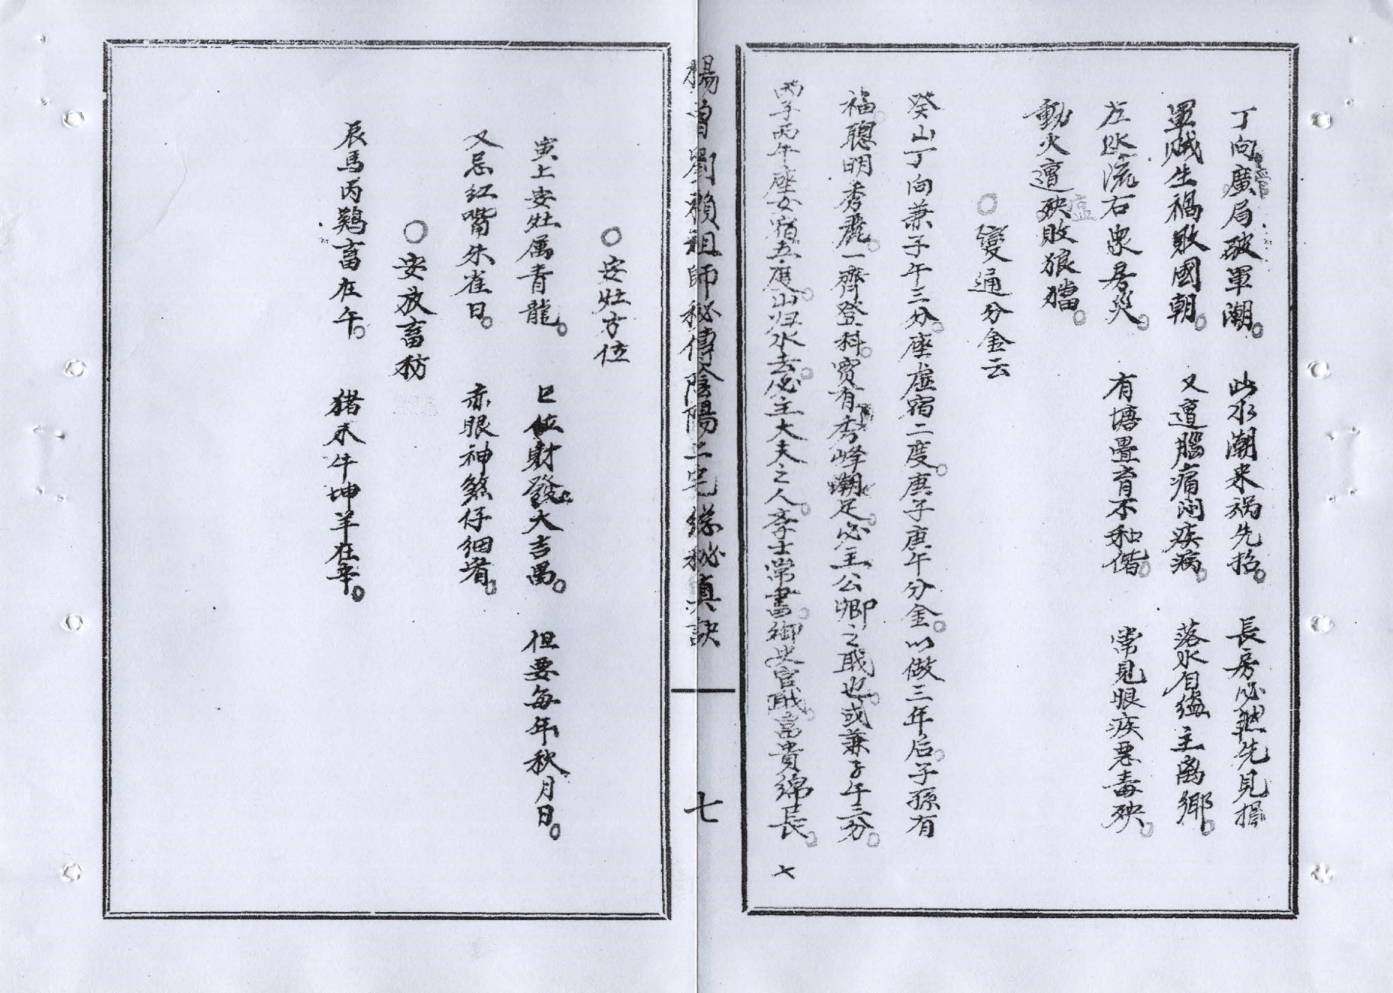 丁向廣局破軍潮。此水潮来禍先招。長房必然先見損
軍賊生禍敗國朝。又遭腦痛问疾病。落水自缢主离鄉。
左水流右衆居災。有塘疊育不和偕。常見眼疾惡毒殃。
動火遭殃敗狼犺。
○變通分金云
癸山丁向兼子午三分。座虛宿二度。庚子庚午分金。以做三年后。子孫有
福。聰明秀麗。一齊登科。宲有秀峰潮足。必主公卿之戝也。或兼子午三分。
丙子丙午座女宿五度。山归水去。必主大夫之人。李士常書。御史官戝。富貴綿長。
七
楊曾劉賴祖師秘傳陰陽二宅総秘真訣
七
○安灶方位
寅上安灶属青龍。巳位財發大吉昌。但要每年秋月日。
又忌红嘴朱雀日。赤眼神煞仔细堦。
○安放畜㧍
辰馬丙鷄畜在午。猪禾牛坤羊在辛。